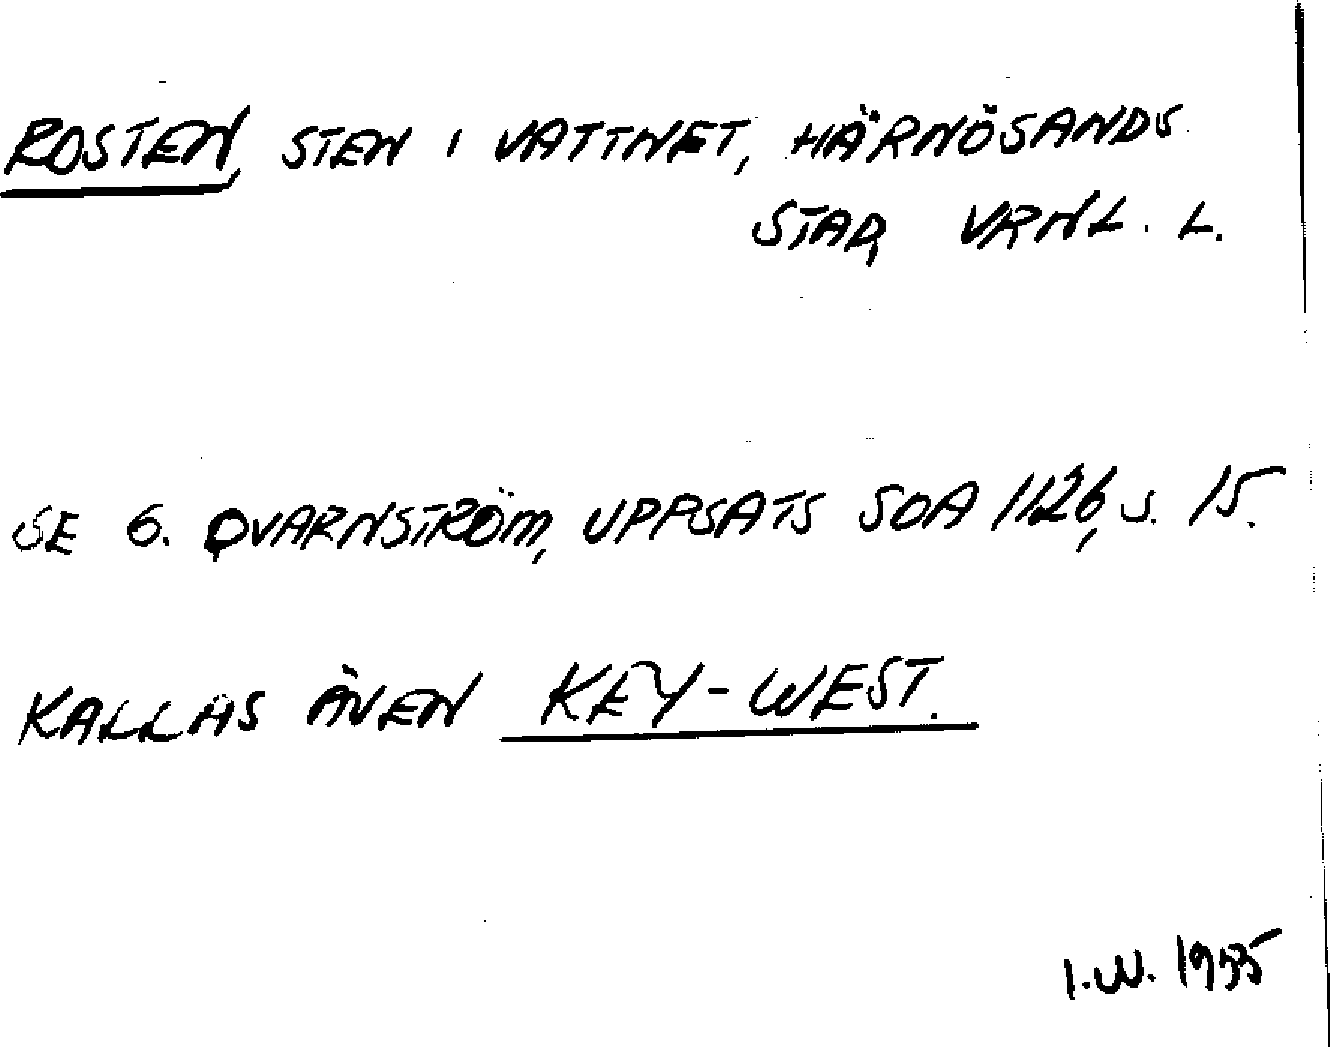 ROSTEN, STEN I VATTNET, HÄRNÖSANDS
STAD, VRNL. L.
SE G. QVARNSTRÖM, UPPSATS SOA 1126, S. 15.
KALLAS ÄVEN KEY-WEST.
I.W. 1935